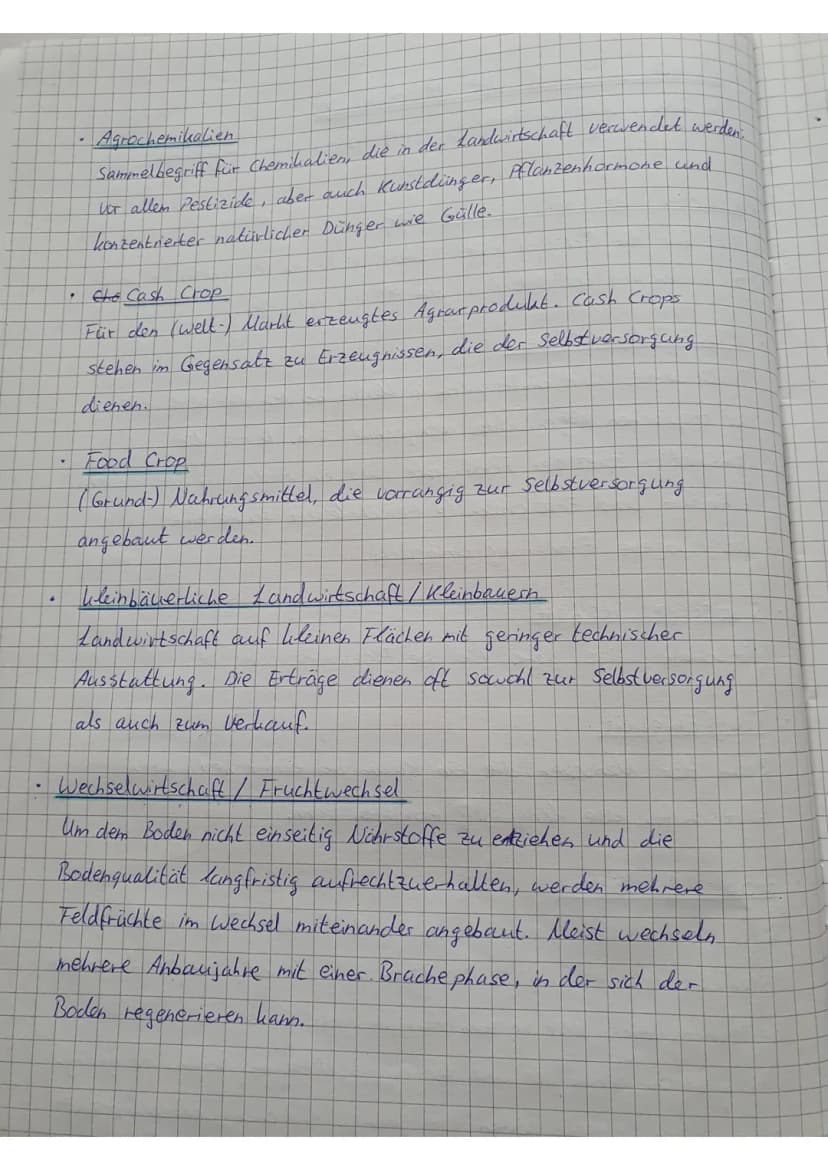 • Agrochemikalien
Sammelbegriff für Chemikalien, die in der Landwirtschaft verwendet werden.
Vor allem Pestizide, aber auch Kunstdünger, Pflanzenhormone und
konzentrierter natürlicher Dünger wie Gülle.
• Cash Crop
Für den (Welt-) Markt erzeugtes Agrarprodukt. Cash Crops
stehen im Gegensatz zu Erzeugnissen, die der Selbstversorgung
dienen.
• Food Crop
(Grund-) Nahrungsmittel, die vorrangig zur Selbstversorgung
angebaut werden.
• kleinbäuerliche Landwirtschaft / Kleinbauern
Landwirtschaft auf kleinen Flächen mit geringer technischer
Ausstattung. Die Erträge dienen oft sowohl zur Selbstversorgung
als auch zum Verkauf.
• Wechselwirtschaft / Fruchtwechsel
Um dem Boden nicht einseitig Nährstoffe zu entziehen und die
Bodenqualität langfristig aufrechtzuerhalten, werden mehrere
Feldfrüchte im Wechsel miteinander angebaut. Meist wechseln
mehrere Anbaujahre mit einer Brachephase, in der sich der
Boden regenerieren kann.